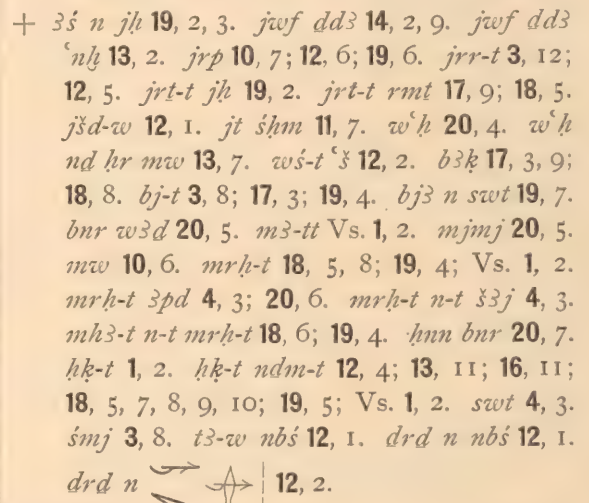 + ꜣś n jḥ 19, 2, 3. jwf ddꜣ 14, 2, 9. jwf ddꜣ
ꜥnḫ 13, 2. jrp 10, 7; 12, 6; 19, 6. jrr-t 3, 12;
12, 5. jrṯ-t jḥ 19, 2. jrṯ-t rmṯ 17, 9; 18, 5.
jšd-w 12, 1. jt śḥm 11, 7. wꜥḥ 20, 4. wꜥḥ
nd ḥr mw 13, 7. wś-t ꜥš 12, 2. bꜣḳ 17, 3, 9;
18, 8. bj-t 3, 8; 17, 3; 19, 4. bjꜣ n swt 19, 7.
bnr wꜣḏ 20, 5. mꜣ-tt Vs. 1, 2. mjmj 20, 5.
mw 10, 6. mrḥ-t 18, 5, 8; 19, 4; Vs. 1, 2.
mrḥ-t ꜣpd 4, 3; 20, 6. mrḥ-t n-t šꜣj 4, 3.
mhꜣ-t n-t mrḥ-t 18, 6; 19, 4. ḥnn bnr 20, 7.
ḥḳ-t 1, 2. ḥḳ-t nḏm-t 12, 4; 13, 11; 16, 11;
18, 5, 7, 8, 9, 10; 19, 5; Vs. 1, 2. swt 4, 3.
śmj 3, 8. ṯꜣ-w nbś 12, 1. ḏrḏ n nbś 12, 1.
ḏrḏ n 12, 2.